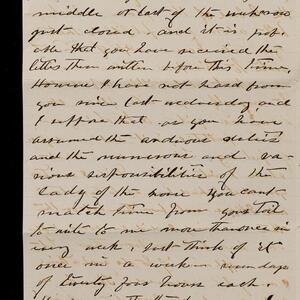 middle or last of the week
just closed. and it is prob
able that you have received the
letter then written before this time.
However I have not heard from
you since last wednesday and
I suppose that as you have
assumed the arduous duties
and the numerous and va
rious responsibilities of the
lady of the house you cant
snatch time from your toil
to write to me more than once in
every week. Just think of it
once in a week - seven days
of twenty four hours each.